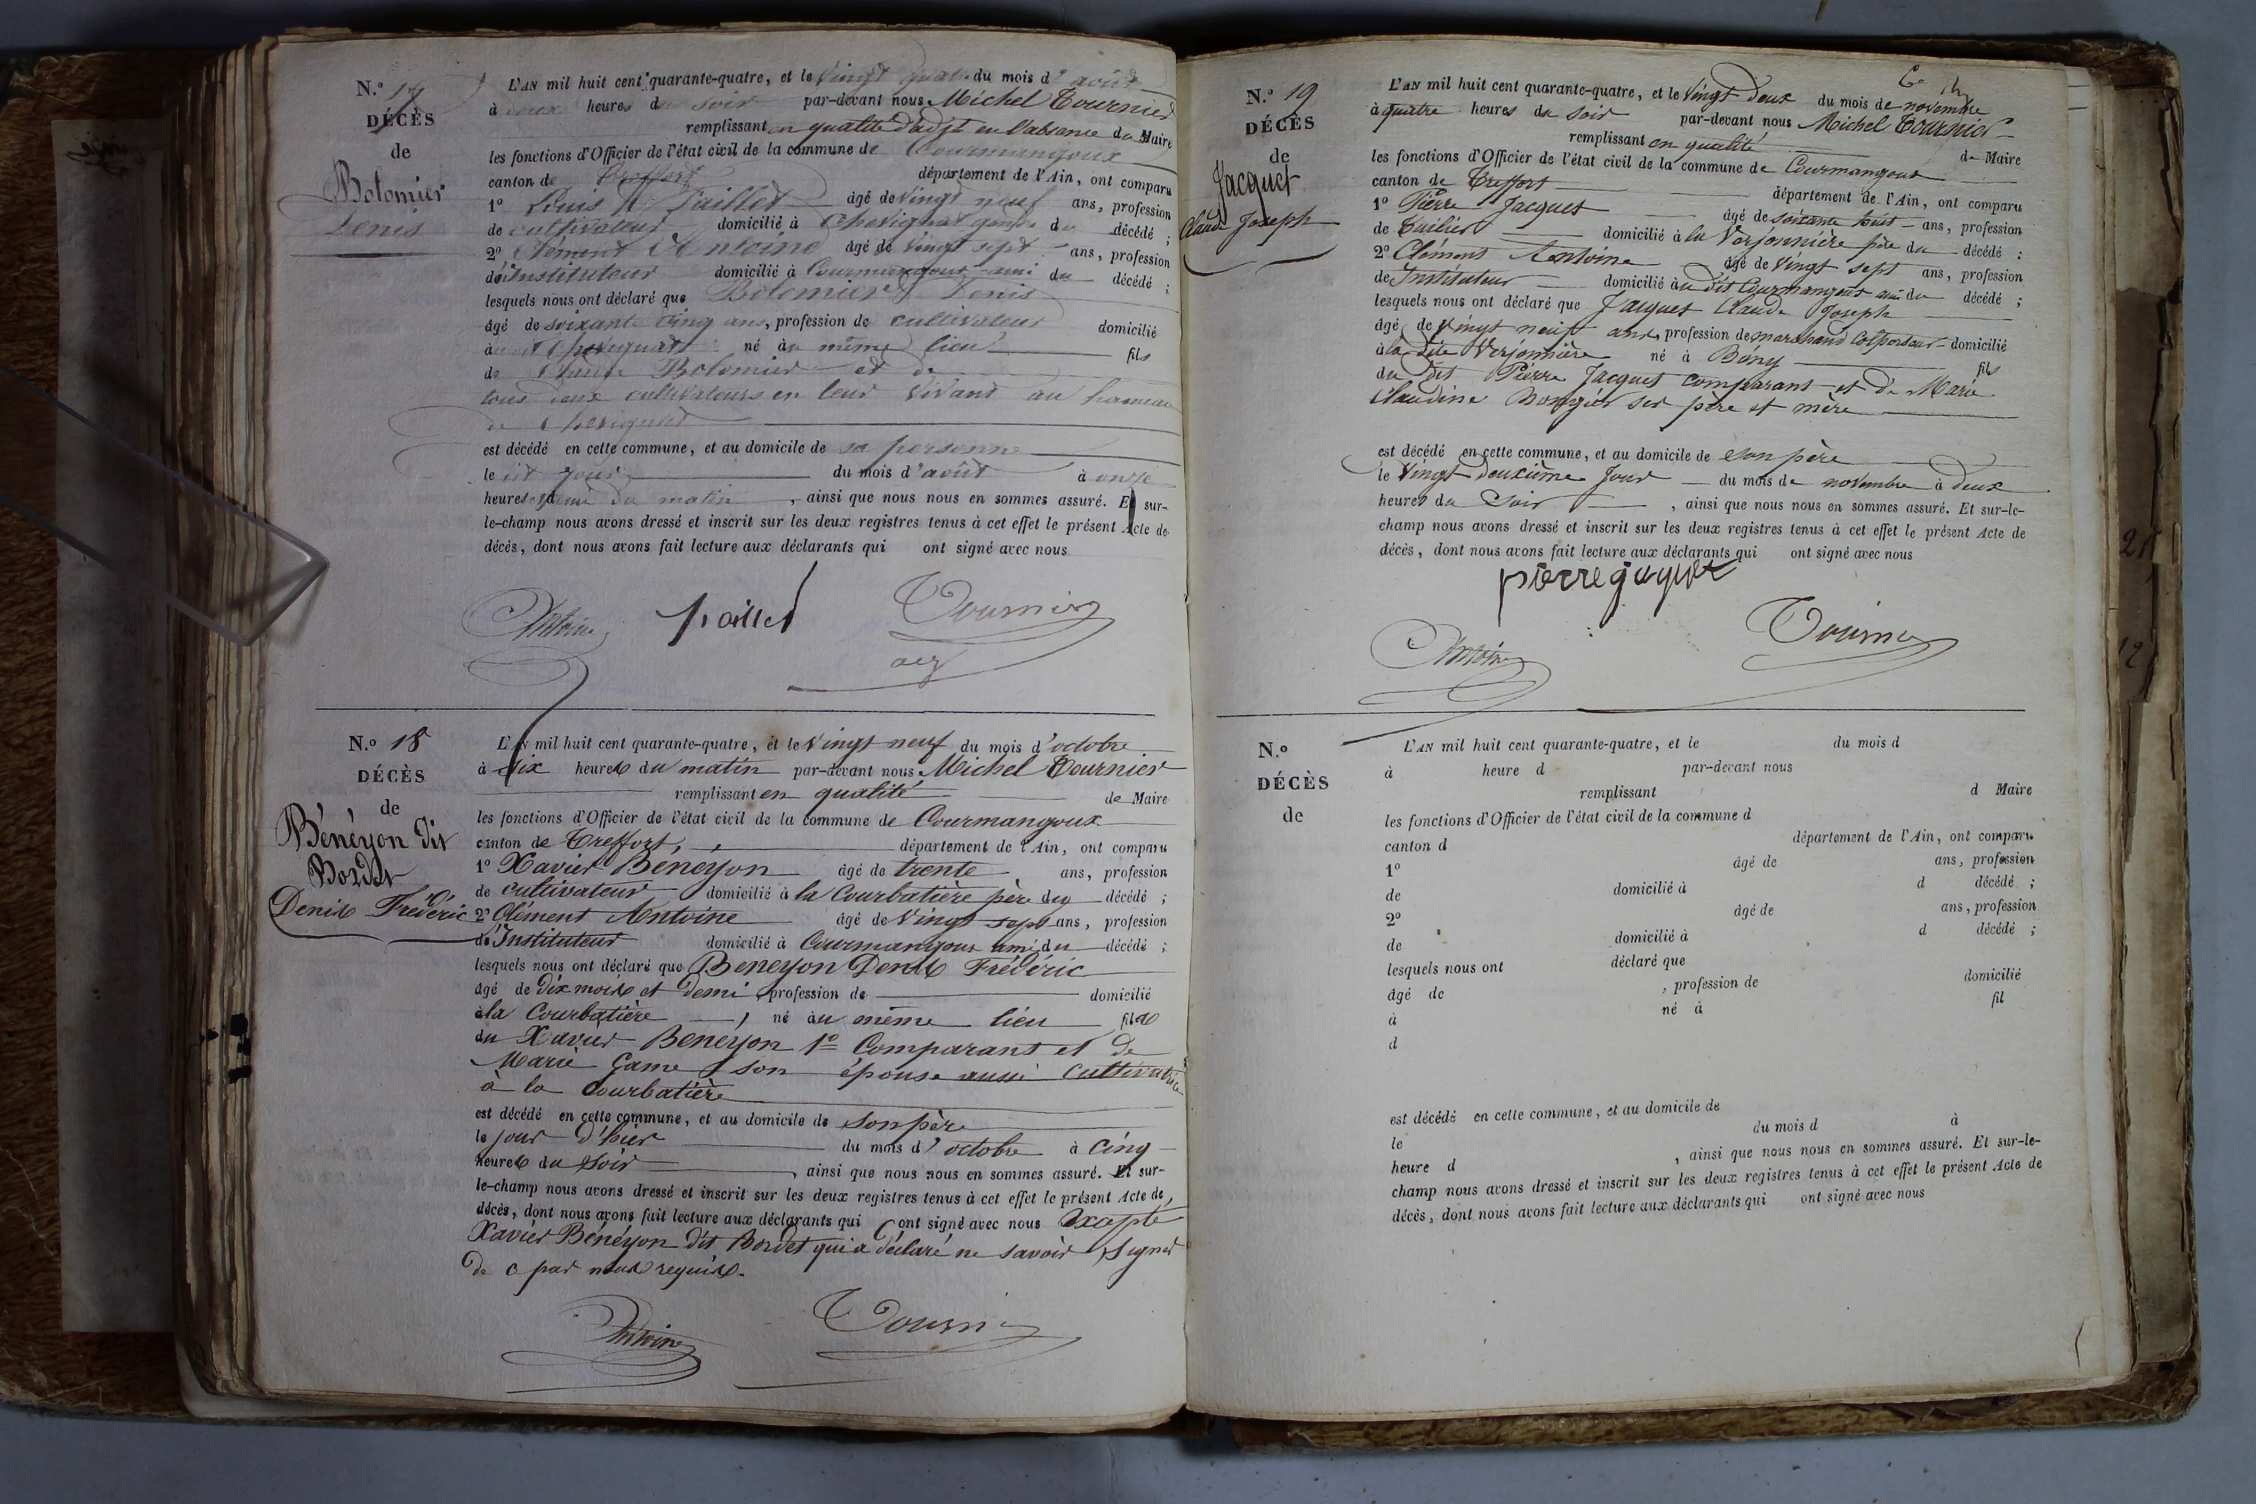 N.° 17
DÉCÈS
de
Bolomier
Denis
L'AN mil huit cent quarante-quatre, et le vingt quatre du mois d'août
à deux heures du soir par-devant nous Michel Tournier
remplissant en qualité d'adjt en l'absence du Maire
les fonctions d'Officier de l'état civil de la commune de Courmangoux
canton de Treffort département de l'Ain, ont comparu
1° Louis Paillet âgé de vingt neuf ans, profession
de cultivateur domicilié à Chevignat gendre du décédé ;
2° Clément Antoine âgé de vingt sept ans, profession
d'Instituteur domicilié à Courmangoux ami du décédé ;
lesquels nous ont déclaré que Bolomier Denis
âgé de soixante cinq ans, profession de cultivateur domicilié
à Chevignat né au même lieu fils
de Bolomier et de
tous deux cultivateurs en leur vivant au hameau
de Chevignat
est décédé en cette commune, et au domicile de sa personne
le dit jour du mois d'août à onze
heures du matin, ainsi que nous nous en sommes assuré. Et sur-
le-champ nous avons dressé et inscrit sur les deux registres tenus à cet effet le présent Acte de
décès, dont nous avons fait lecture aux déclarants qui ont signé avec nous
Antoine paillet Tournier
adj
N.° 18
DÉCÈS
de
Bénéyon dit
Bordet
Denis Frédéric
L'AN mil huit cent quarante-quatre, et le vingt neuf du mois d'octobre
à dix heures du matin par-devant nous Michel Tournier
remplissant en qualité de Maire
les fonctions d'Officier de l'état civil de la commune de Courmangoux
canton de Treffort, département de l'Ain, ont comparu
1° Xavier Bénéyon âgé de trente ans, profession
de cultivateur domicilié à la Courbatière père du décédé ;
2° Clément Antoine âgé de vingt sept ans, profession
d'Instituteur domicilié à Courmangoux ami du décédé ;
lesquels nous ont déclaré que Beneyon Denis Frédéric
âgé de dix mois et demi, profession de domicilié
à la Courbatière, né au même lieu fils
du Xavier Bénéyon 1° Comparant et de
Marie Game son épouse aussi cultivatrice
à la Courbatière
est décédé en cette commune, et au domicile de son père
le jour d'hier du mois d'octobre à cinq
heures du soir, ainsi que nous nous en sommes assuré. Et sur-
le-champ nous avons dressé et inscrit sur les deux registres tenus à cet effet le présent Acte de
décès, dont nous avons fait lecture aux déclarants qui ont signé avec nous Excepté
Xavier Bénéyon dit Bordet qui a déclaré ne savoir signer
de c par nous requis.
Antoine Tournier
N.° 19
DÉCÈS
de
Jacquet
Claude Joseph
L'AN mil huit cent quarante-quatre, et le vingt deux du mois de novembre
à quatre heures du soir par-devant nous Michel Tournier
remplissant en qualité de Maire
les fonctions d'Officier de l'état civil de la commune de Courmangoux
canton de Treffort département de l'Ain, ont comparu
1° Pierre Jacquet âgé de soixante huit ans, profession
de Tuilier domicilié à la Verjonnière père du décédé ;
2° Clément Antoine âgé de vingt sept ans, profession
de Instituteur domicilié au dit Courmangoux ami du décédé ;
lesquels nous ont déclaré que Jacquet Claude Joseph
âgé de vingt neuf ans, profession de marchand Colporteur domicilié
à la dite Verjonnière né à Bény fils
du dit Pierre Jacquet comparant et de Marie
Claudine ses père et mère
est décédé en cette commune, et au domicile de son père
le vingt deuxième jour du mois de novembre à deux
heures du soir, ainsi que nous nous en sommes assuré. Et sur-le-
champ nous avons dressé et inscrit sur les deux registres tenus à cet effet le présent Acte de
décès, dont nous avons fait lecture aux déclarants qui ont signé avec nous
pierre jaquet
Antoine Tournier
N.°
DÉCÈS
de
L'AN mil huit cent quarante-quatre, et le du mois d
à heure d par-devant nous
remplissant d Maire
les fonctions d'Officier de l'état civil de la commune d
canton d département de l'Ain, ont comparu
1° âgé de ans, profession
de domicilié à d décédé ;
2° âgé de ans, profession
de domicilié à d décédé ;
lesquels nous ont déclaré que
âgé de , profession de domicilié
à né à fil
d
est décédé en cette commune, et au domicile de
le du mois d à
heure d , ainsi que nous nous en sommes assuré. Et sur-le-
champ nous avons dressé et inscrit sur les deux registres tenus à cet effet le présent Acte de
décès, dont nous avons fait lecture aux déclarants qui ont signé avec nous